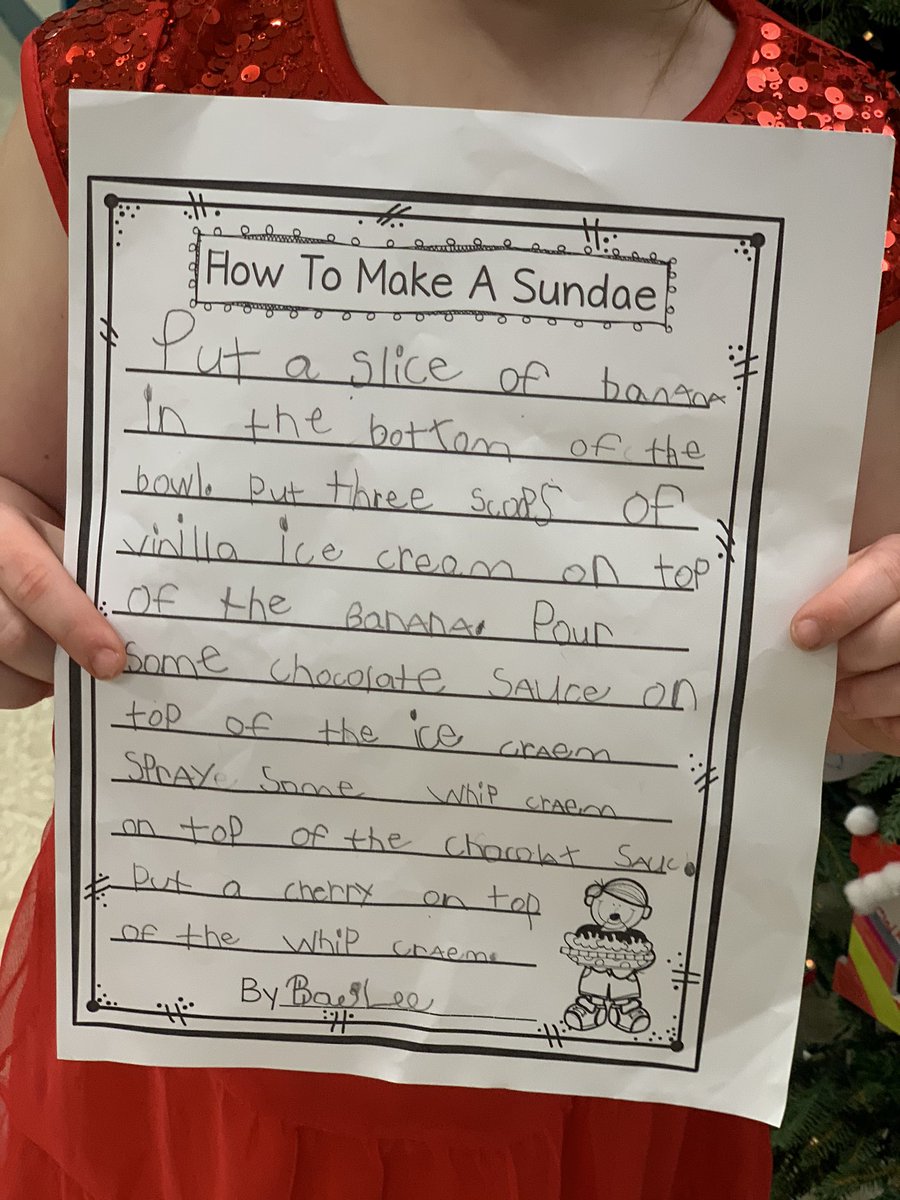 How To Make A Sundae
Put a slice of banana
in the bottom of the
bowl. Put three scoops of
vinilla ice cream on top
of the banana. Pour
some chocolate sauce on
top of the ice craem
spraye some whip craem
on top of the chocolat sauc.
Put a cherry on top
of the whip craem.
By